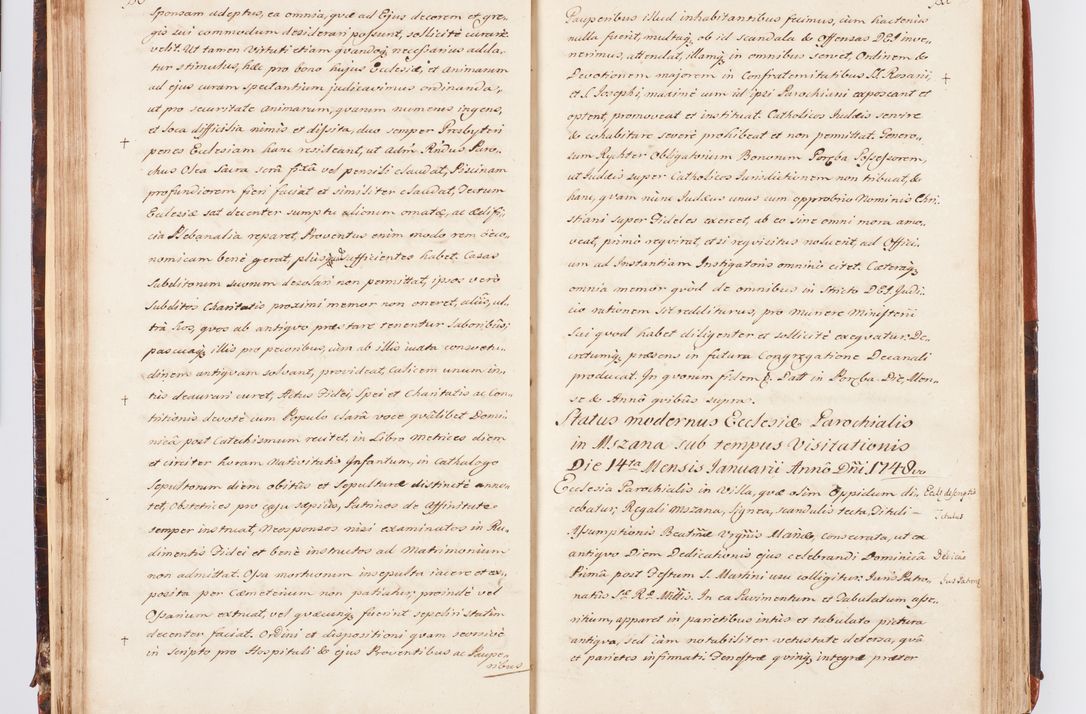 Sponsam adeptus, ea omnia, quæ ad Ejus decorem et gre-
gis sui commodum desiderari possunt, sollicité curare
velit. Ut tamen Virtuti etiam quandoq; necessarius adda-
tur stimulus, hæc pro bono hujus Ecclesiæ, et Animarum
ad ejus curam spectantium judicavimus ordinanda,
ut pro securitate animarum, quarum numerus ingens,
et loca difficilia nimis et dissita, duo semper Presbyteri
penes Ecclesiam hanc resideant, ut Adm Rndus Paro-
chus Olea Sacra serâ fixâ vel pensili claudat, Piscinam
profundiorem fieri faciat et similiter claudat, Tectum
Ecclesiæ sat decenter sumptu alienum ornatæ, ac ædifi-
cia Plebanalia reparet, Proventus enim modo rem œco-
nomicam bené gerat, plus sufficientes habet. Casas
Subditorum suorum desolari non permittat, ipsos veró
Subditos Charitatis proximi memor non oneret, aliis, ul-
trà suos, quos ab antiquo præstare tenentur laboribus,
pascuaq; illis pro pecoribus, cùm ab illis iuxta consvetu-
dinem antiquam solvant, provideat, Calicem unum in-
tus deaurari curet, Actus Fidei, Spei et Charitatis ac Con-
tritionis devoté cum Populo clarâ voce quâlibet Domi-
nicâ post Catechismum recitet, in Libro Metrices diem
et circiter horam Nativitatis Infantum, in Cathalogo
Sepultorum diem obitûs et Sepulturæ distincté anno-
tet, Obstetrices pro casu sæpiùs, Patrinos de Affinitate
semper instruat, Neosponsos nisi examinatos in Ru-
dimentis Fidei et bené instructos ad Matrimonium
non admittat. Ossa mortuorum insepulta iacere et ex-
posita per Cæmeterium non patiatur, proindé vel
Ossarium extruat, vel quæcunq; fuerint sepeliri statim
decenter faciat. Ordini et dispositioni quam seorsivé
in scripto pro Hospitali & ejus Proventibus ac Paupe-
ribus
Pauperibus illud inhabitantibus fecimus, cùm hactenùs
nulla fuerit, multaq; ob id scandala & offensas DEI inve-
nerimus, attendat, illamq; in omnibus servet, Ordinem &
Devotionem majorem in Confraternitatibus SS. Rosarii,
et S. Josephi, maximé cum id ipsi Parochiani exposcant et
optent, promoveat et instituat. Catholicos Judæis servire
& cohabitare severé prohibeat et non permittat. Genero-
sum Rychter Obligatorium Bonorum Poręba Possessorem,
ut Judæis super Catholicos Jurisdictionem non tribuat, &
hanc, quam nunc Judæus unus cum opprobrio Nominis Chri-
stiani super Fideles exercet, ab eo sine omni mora amo-
veat, primò requirat, et si requisitus noluerit, ad Offici-
um ad Instantiam Instigatoris omninò citet. Cæteraq;
omnia memor quòd de omnibus in Stricto DEI Judi-
cio rationem sit redditurus, pro munere Ministerii
Sui quod habet diligenter et sollicité exequatur. De-
cretumq; præsens in futura Congregatione Decanali
producat. In quorum fidem &. Datt in Poręba. Die, Men-
se & Anno quibus supra.
Status modernus Ecclesiæ Parochialis
in Mszana sub tempus Visitationis
Die 14ta Mensis Januarii Annô Dni 1748vo
Ecclesia Parochialis in Villa, quæ olim Oppidum di-
cebatur, Regali Mszana, lignea, scandulis tecta, Tituli
Assumptionis Beatmæ Vrginis Mariæ, consecrata, ut ex
antiquo Diem Dedicationis ejus celebrandi Dominicâ
Primâ post Festum S. Martini usu colligitur. Juris Patro-
natûs Sæ Ræ Mttis. In ea Pavimentum et Tabulatum asse-
ritium, apparet in parietibus intùs et tabulato pictura
antiqua, sed jàm notabiliter vetustate detersa, quâ
et parietes infirmati. Fenestræ quinq; integræ præter
Eccl. descriptio
Titulus
Jus Patron